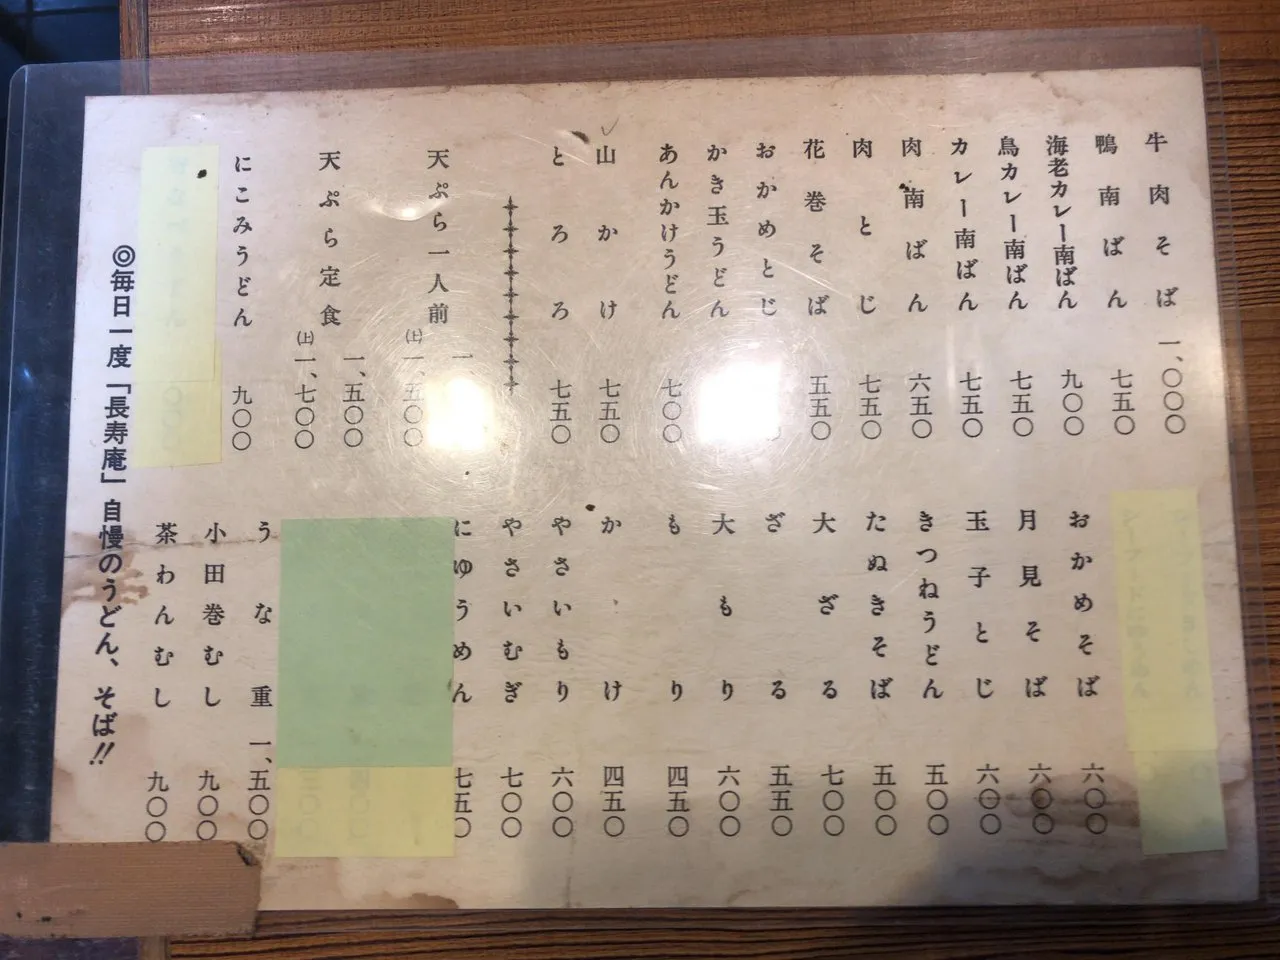 牛肉そば 一、〇〇〇
鴨南ばん 七五〇
海老カレー南ばん 九〇〇
鳥カレー南ばん 七五〇
カレー南ばん 七五〇
肉南ばん 六五〇
肉とじ 七五〇
花巻そば 五五〇
おかめとじ
かき玉うどん
あんかけうどん 七〇〇
山かけ 七五〇
とろろ 七五〇
天ぷら一人前 一、
(上)一、五〇〇
天ぷら定食 一、五〇〇
(上)一、七〇〇
にこみうどん 九〇〇
おかめそば 六〇〇
月見そば 六〇〇
玉子とじ 六〇〇
きつねうどん 五〇〇
たぬきそば 五〇〇
大ざる 七〇〇
ざる 五五〇
大もり 六〇〇
もり 四五〇
かけ 四五〇
やさいもり 六〇〇
やさいむぎ 七〇〇
にゆうめん 七五〇
うな重 一、五〇〇
小田巻むし 九〇〇
茶わんむし 九〇〇
◎毎日一度「長寿庵」自慢のうどん、そば!!